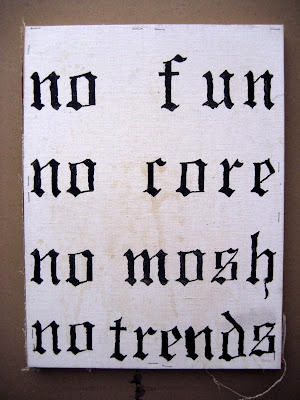 no fun
no core
no mosh
no trends